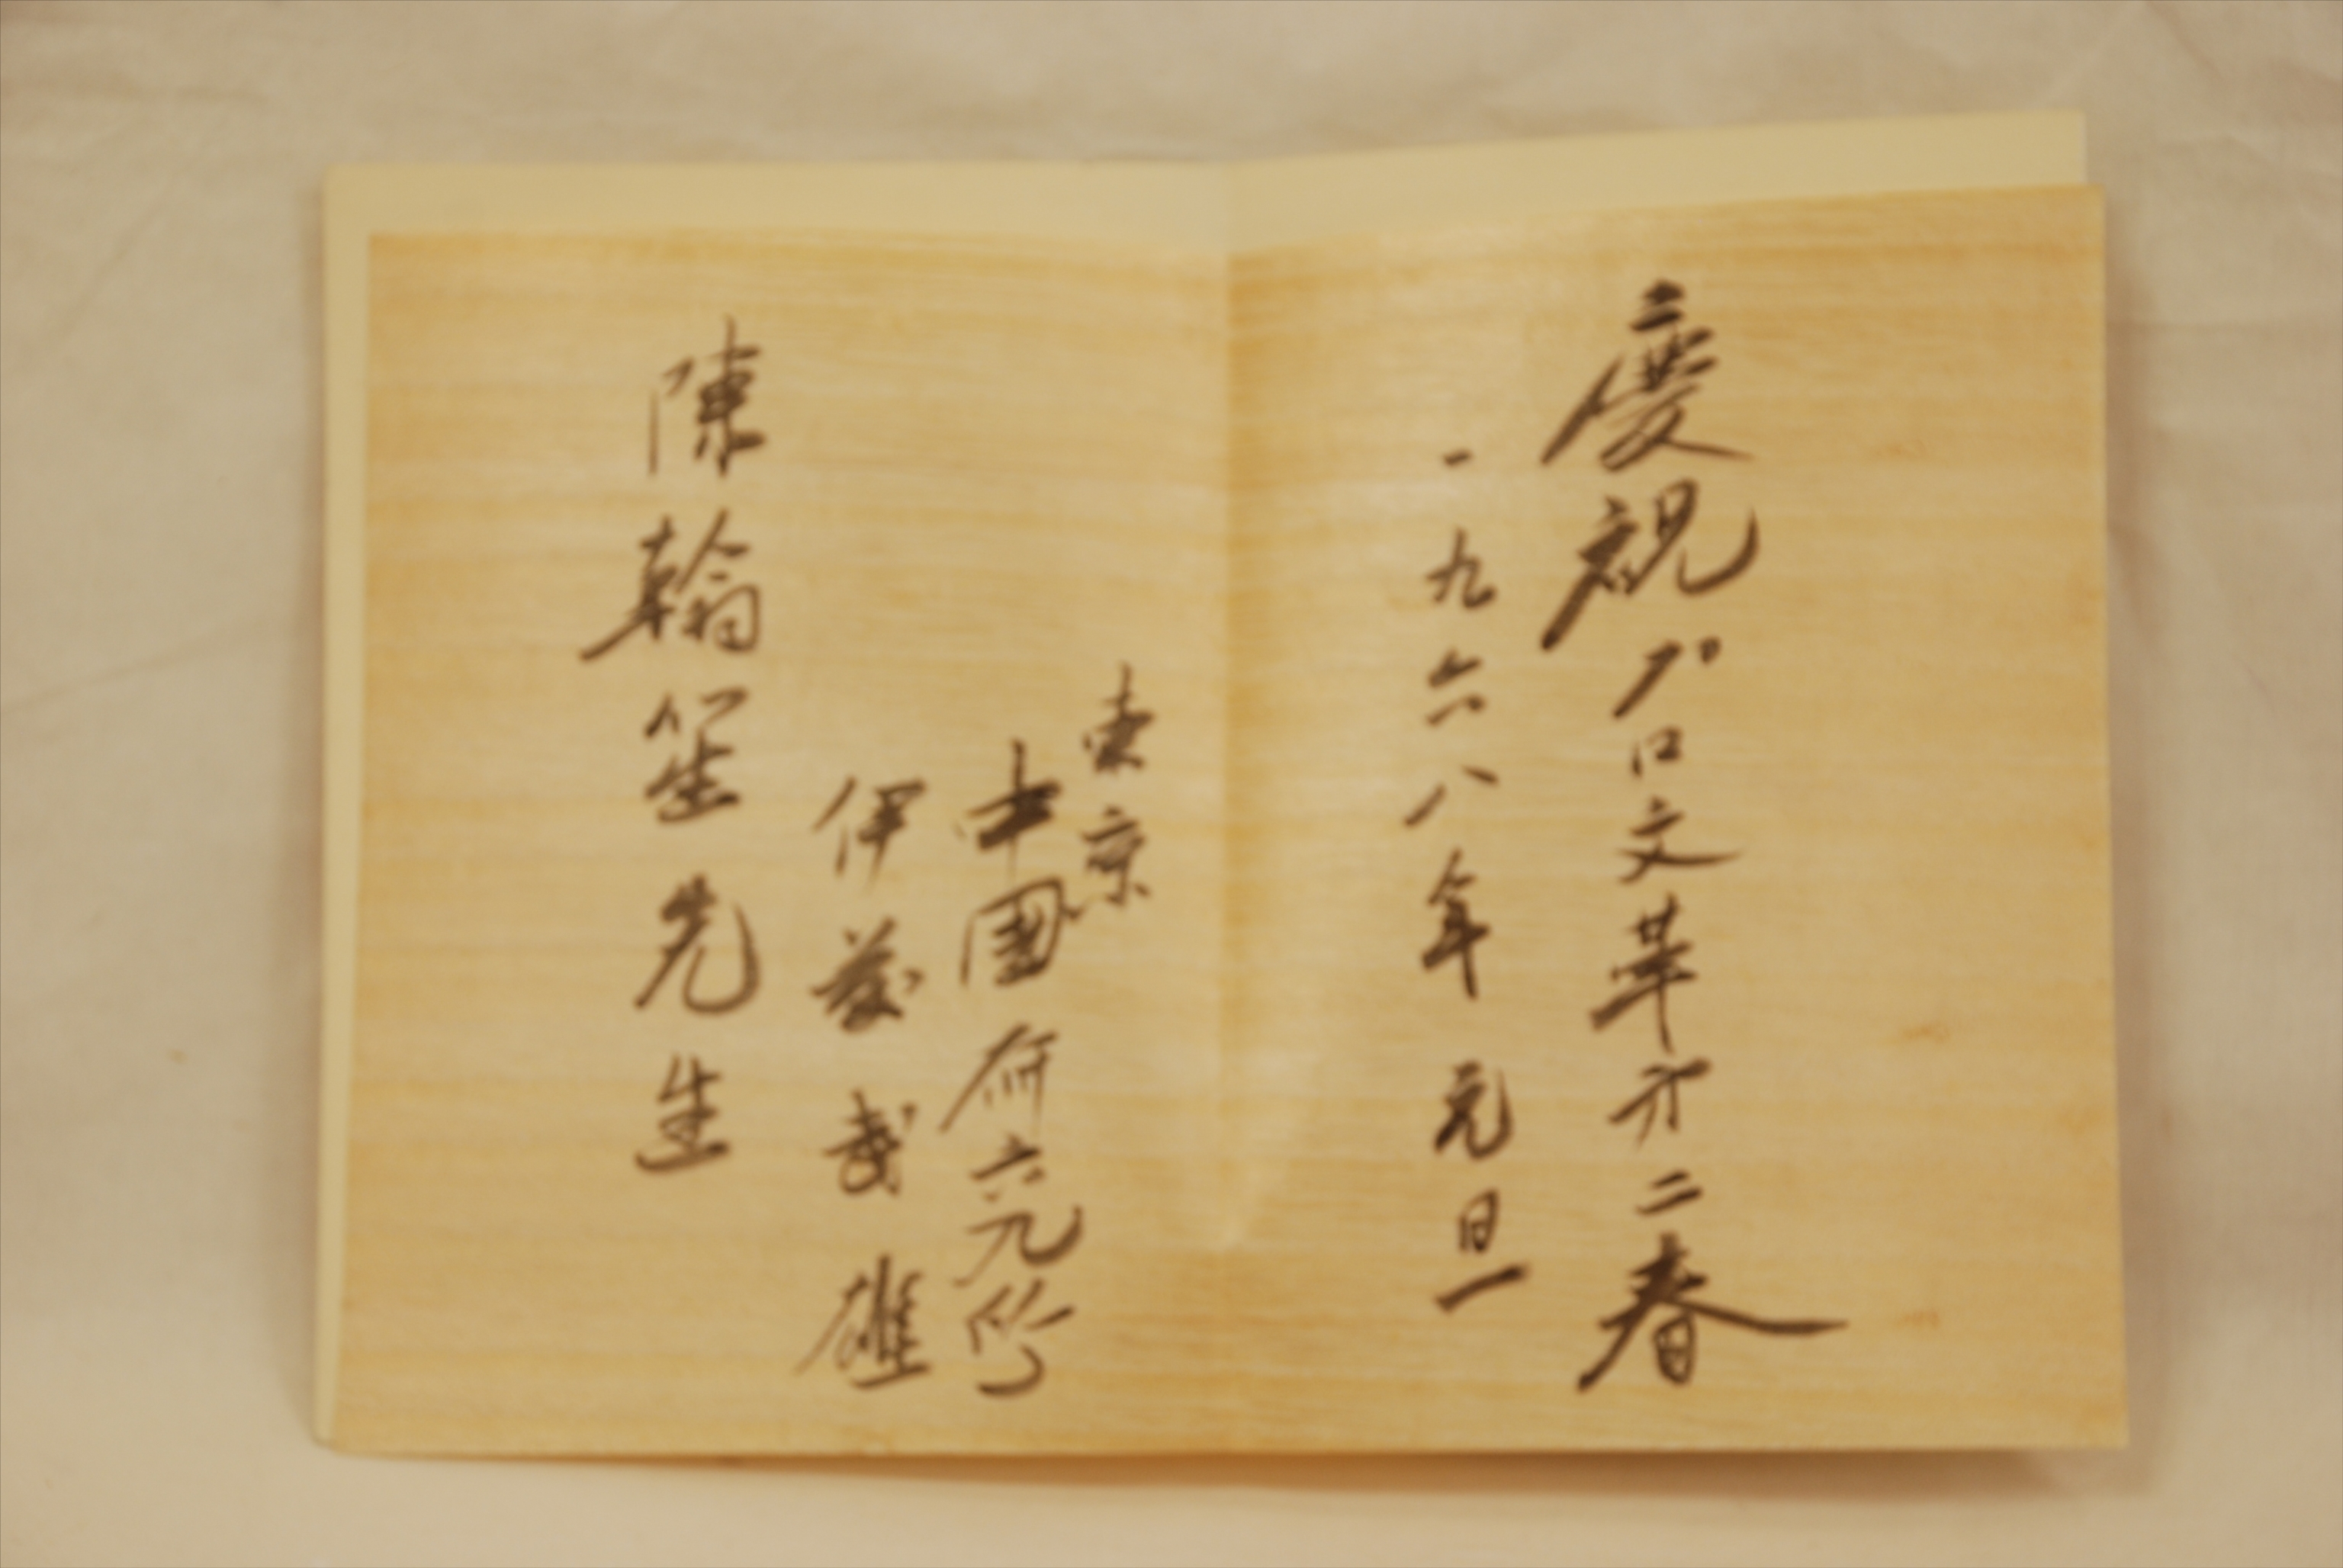 慶祝プロ文革才二春
一九六八年元旦
東京
中國研究所
伊藤武雄
陳翰笙先生